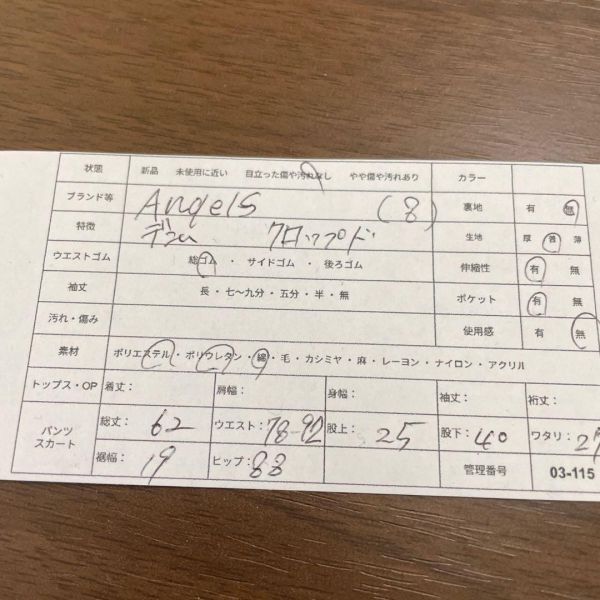 状態 新品 未使用に近い 目立った傷や汚れなし やや傷や汚れあり カラー
ブランド等 Angels (8) 裏地 有 無
特徴 デニム クロップド 生地 厚 普 薄
ウエストゴム 総ゴム・サイドゴム・後ろゴム 伸縮性 有 無
袖丈 長・七〜九分・五分・半・無 ポケット 有 無
汚れ・傷み 使用感 有 無
素材 ポリエステル・ポリウレタン・綿・毛・カシミヤ・麻・レーヨン・ナイロン・アクリル
トップス・OP 着丈: 肩幅: 身幅: 袖丈: 裄丈:
パンツ スカート 総丈: 62 ウエスト: 78-92 股上: 25 股下: 40 ワタリ:
裾幅: 19 ヒップ: 88 管理番号 03-115